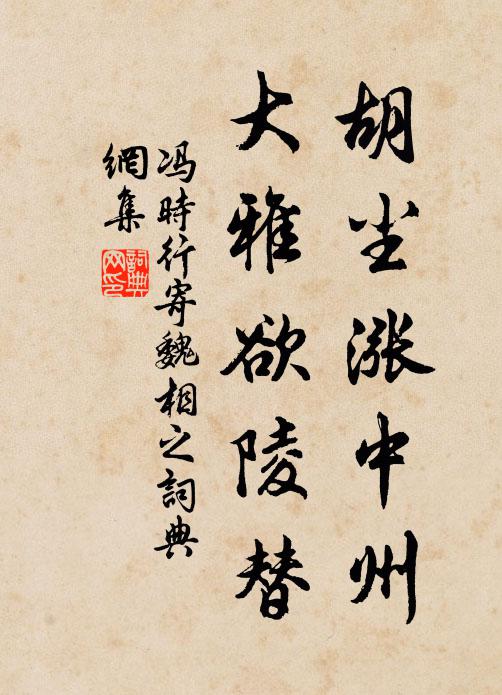 胡尘涨中州
大雅欲陵替
冯時行寄魏相之詞典
網集
詞典
网印